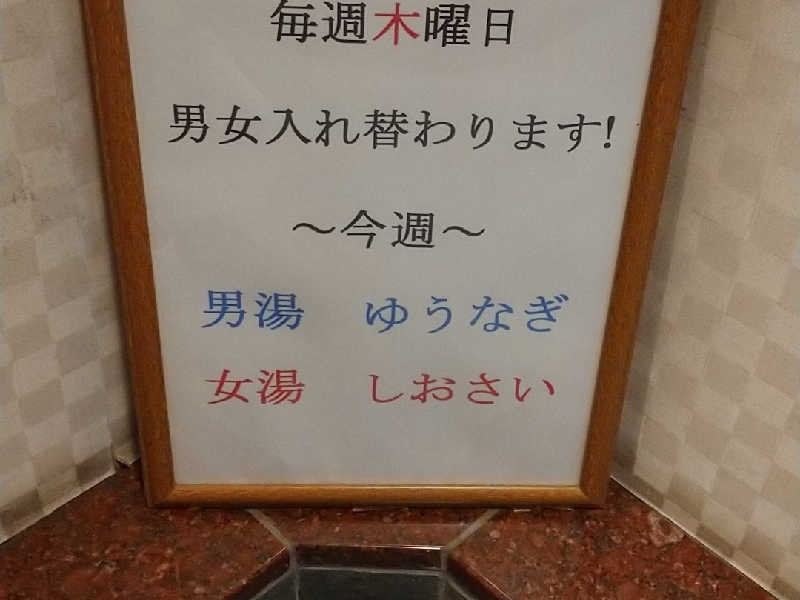 毎週木曜日
男女入れ替わります!
～今週～
男湯　ゆうなぎ
女湯　しおさい